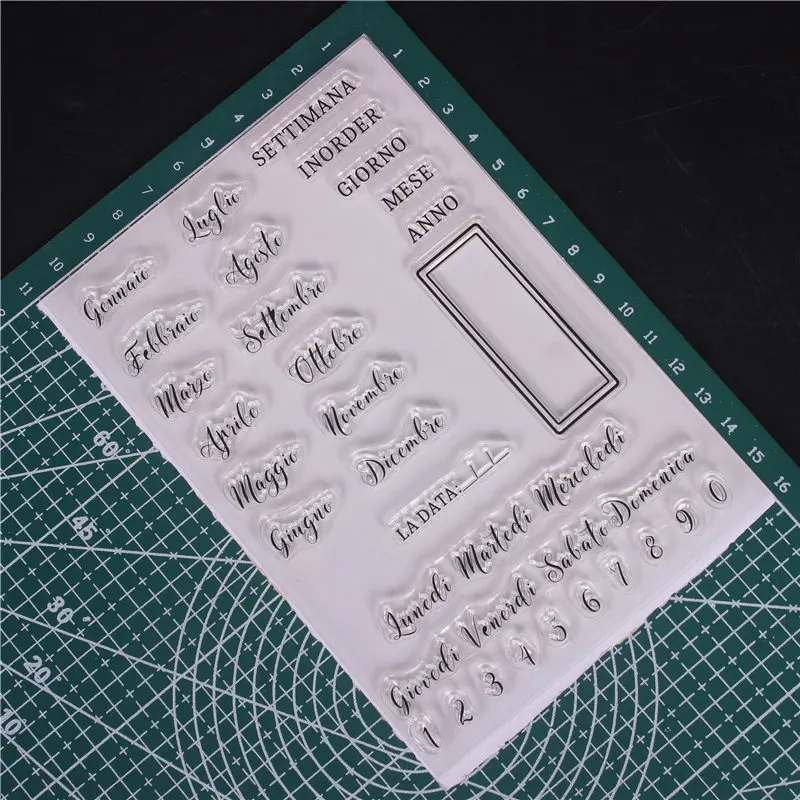 SETTIMANA
INORDER
GIORNO
MESE
ANNO
Luglio
Agosto
Settembre
Ottobre
Novembre
Dicembre
Gennaio
Febbraio
Marzo
Aprile
Maggio
Giugno
LA DATA:
Lunedi Martedi Mercoledi
Giovedi Venerdi Sabato Domenica
1 2 3 4 5 6 7 8 9 0
1 2 3 4 5 6 7 8 9 10 11
1 2 3 4 5 6 7 8 9 10 11 12 13 14 15 16
60°
45°
30°
20°
10°